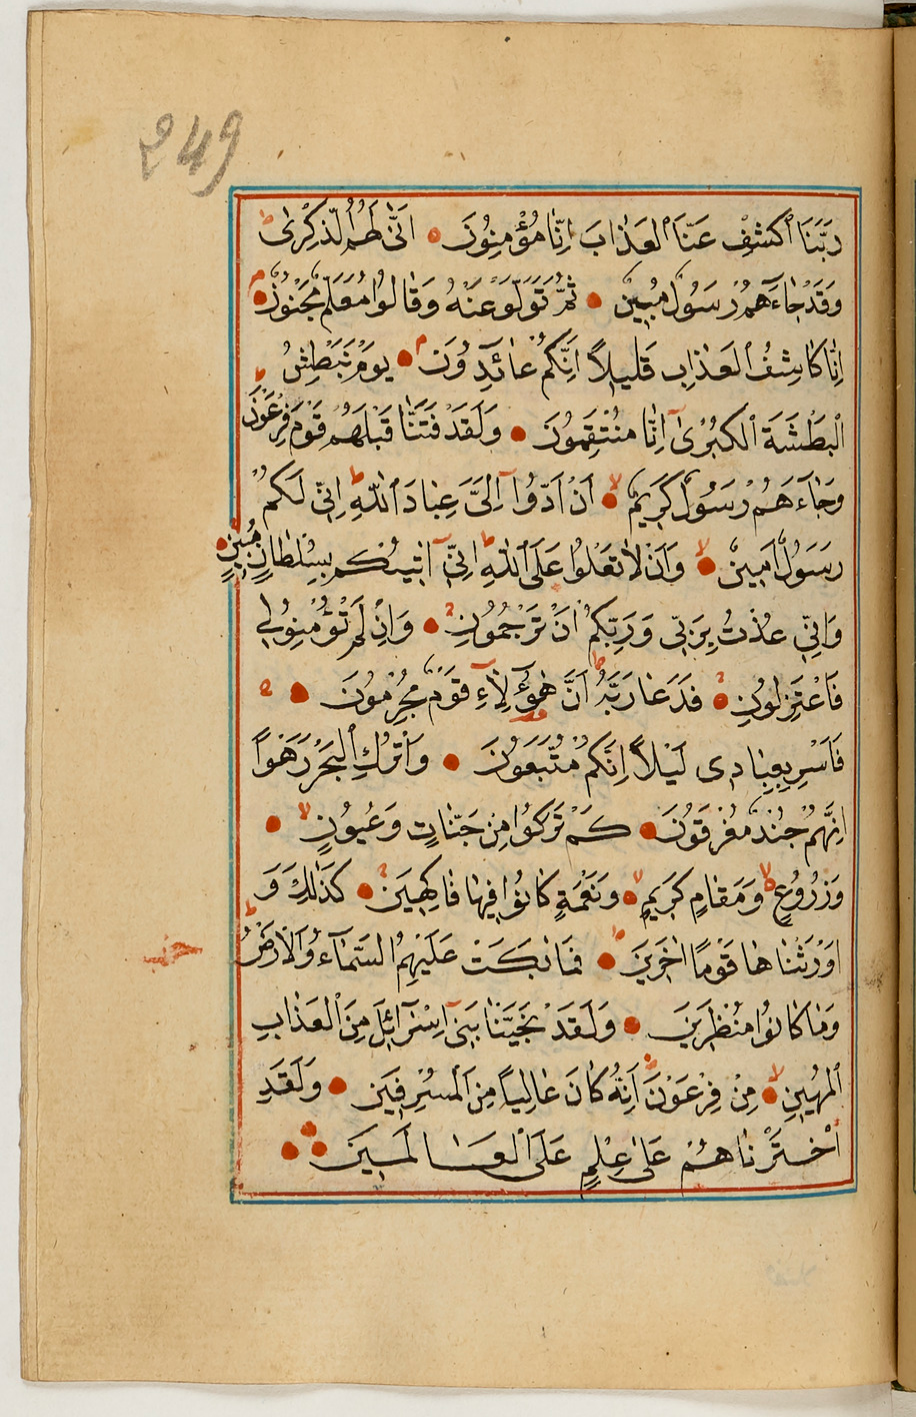 249
رَبَّنَا ٱكْشِفْ عَنَّا ٱلْعَذَابَ اِنَّا مُؤْمِنُونَ اَنّٰى لَهُمُ ٱلذِّكْرٰى
وَقَدْ جَاءَهُمْ رَسُولٌ مُبِينٌ ثُمَّ تَوَلَّوْ عَنْهُ وَقَالُوا مُعَلَّمٌ مَجْنُونٌ
اِنَّا كَاشِفُ ٱلْعَذَابِ قَلِيلًا اِنَّكُمْ عَائِدُونَ يَوْمَ نَبْطِشُ
ٱلْبَطْشَةَ ٱلْكُبْرٰى اِنَّا مُنْتَقِمُونَ وَلَقَدْ فَتَنَّا قَبْلَهُمْ قَوْمَ فِرْعَوْنَ
وَجَاءَهُمْ رَسُولٌ كَرِيمٌ اَنْ اَدُّوا اِلَىَّ عِبَادَ ٱللّٰهِ اِنِّى لَكُمْ
رَسُولٌ اَمِينٌ وَاَنْ لَا تَعْلُوا عَلَى ٱللّٰهِ اِنِّى اٰتِيكُمْ بِسُلْطَانٍ مُبِينٍ
وَاِنِّى عُذْتُ بِرَبِّى وَرَبِّكُمْ اَنْ تَرْجُمُونِ وَاِنْ لَمْ تُؤْمِنُوا لِى
فَاعْتَزِلُونِ فَدَعَا رَبَّهُ اَنَّ هٰؤُلَاءِ قَوْمٌ مُجْرِمُونَ
فَاَسْرِ بِعِبَادِى لَيْلًا اِنَّكُمْ مُتَّبَعُونَ وَاتْرُكِ ٱلْبَحْرَ رَهْوًا
اِنَّهُمْ جُنْدٌ مُغْرَقُونَ كَمْ تَرَكُوا مِنْ جَنَّاتٍ وَعُيُونٍ
وَزُرُوعٍ وَمَقَامٍ كَرِيمٍ وَنَعْمَةٍ كَانُوا فِيهَا فَاكِهِينَ كَذٰلِكَ وَ
اَوْرَثْنَاهَا قَوْمًا اٰخَرِينَ فَمَا بَكَتْ عَلَيْهِمُ ٱلسَّمَآءُ وَٱلْاَرْضُ
وَمَا كَانُوا مُنْظَرِينَ وَلَقَدْ نَجَّيْنَا بَنِى اِسْرَآئِلَ مِنَ ٱلْعَذَابِ
ٱلْمُهِينِ مِنْ فِرْعَوْنَ اِنَّهُ كَانَ عَالِيًا مِنَ ٱلْمُسْرِفِينَ وَلَقَدِ
اخْتَرْنَاهُمْ عَلٰى عِلْمٍ عَلَى ٱلْعَالَمِينَ